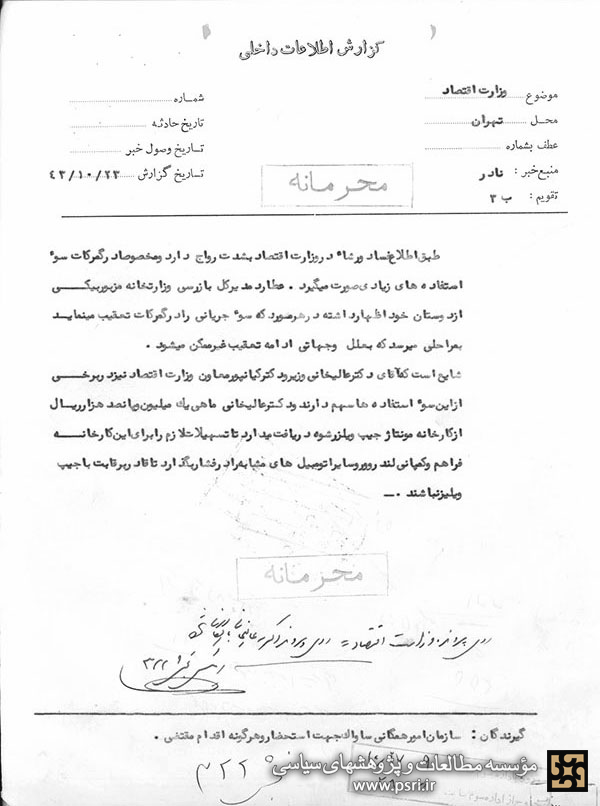 گزارش اطلاعات داخلی
موضوع وزارت اقتصاد
محل تهران
عطف بشماره
منبع خبر : نادر
تقویم : ب ۳
شماره
تاریخ حادثه
تاریخ وصول خبر
تاریخ گزارش ۴۳/۱۰/۲۳
محرمانه
طبق اطلاع فساد ورشاء در وزارت اقتصاد بشدت رواج دارد ومخصوصا در گمرکات سوء
استفاده های زیادی صورت میگیرد . عطارد مدیرکل بازرسی وزارتخانه مزبور بیکی
از دوستان خود اظهار داشته در هر مورد که سوء جریانی را در گمرکات تعقیب مینماید
بمراحلی میرسد که بعلل وجهاتی ادامه تعقیب غیرممکن میشود .
شایع است که آقای دکتر عالیخانی وزیر ودکتر کیانپور معاون وزارت اقتصاد نیز در برخی
از این سوء استفاده ها سهم دارند ودکتر عالیخانی ماهی یک میلیون وپانصد هزار ریال
از کارخانه مونتاژ جیپ ویلز رشوه دریافت میدارد تا تسهیلات لازم را برای این کارخانه
فراهم وکمپانی لندرور وسایر اتومبیل های مشابه را در فشار بگذارد تا قادر برقابت با جیپ
ویلیز نباشند .—
محرمانه
روی پرونده وزارت اقتصاد
۳۲۲
گیرندگان : سازمان امور همگانی ساواک جهت استحضار وهرگونه اقدام مقتضی .
۳۲۲
مؤسسه مطالعات و پژوهشهای سیاسی
www.psri.ir